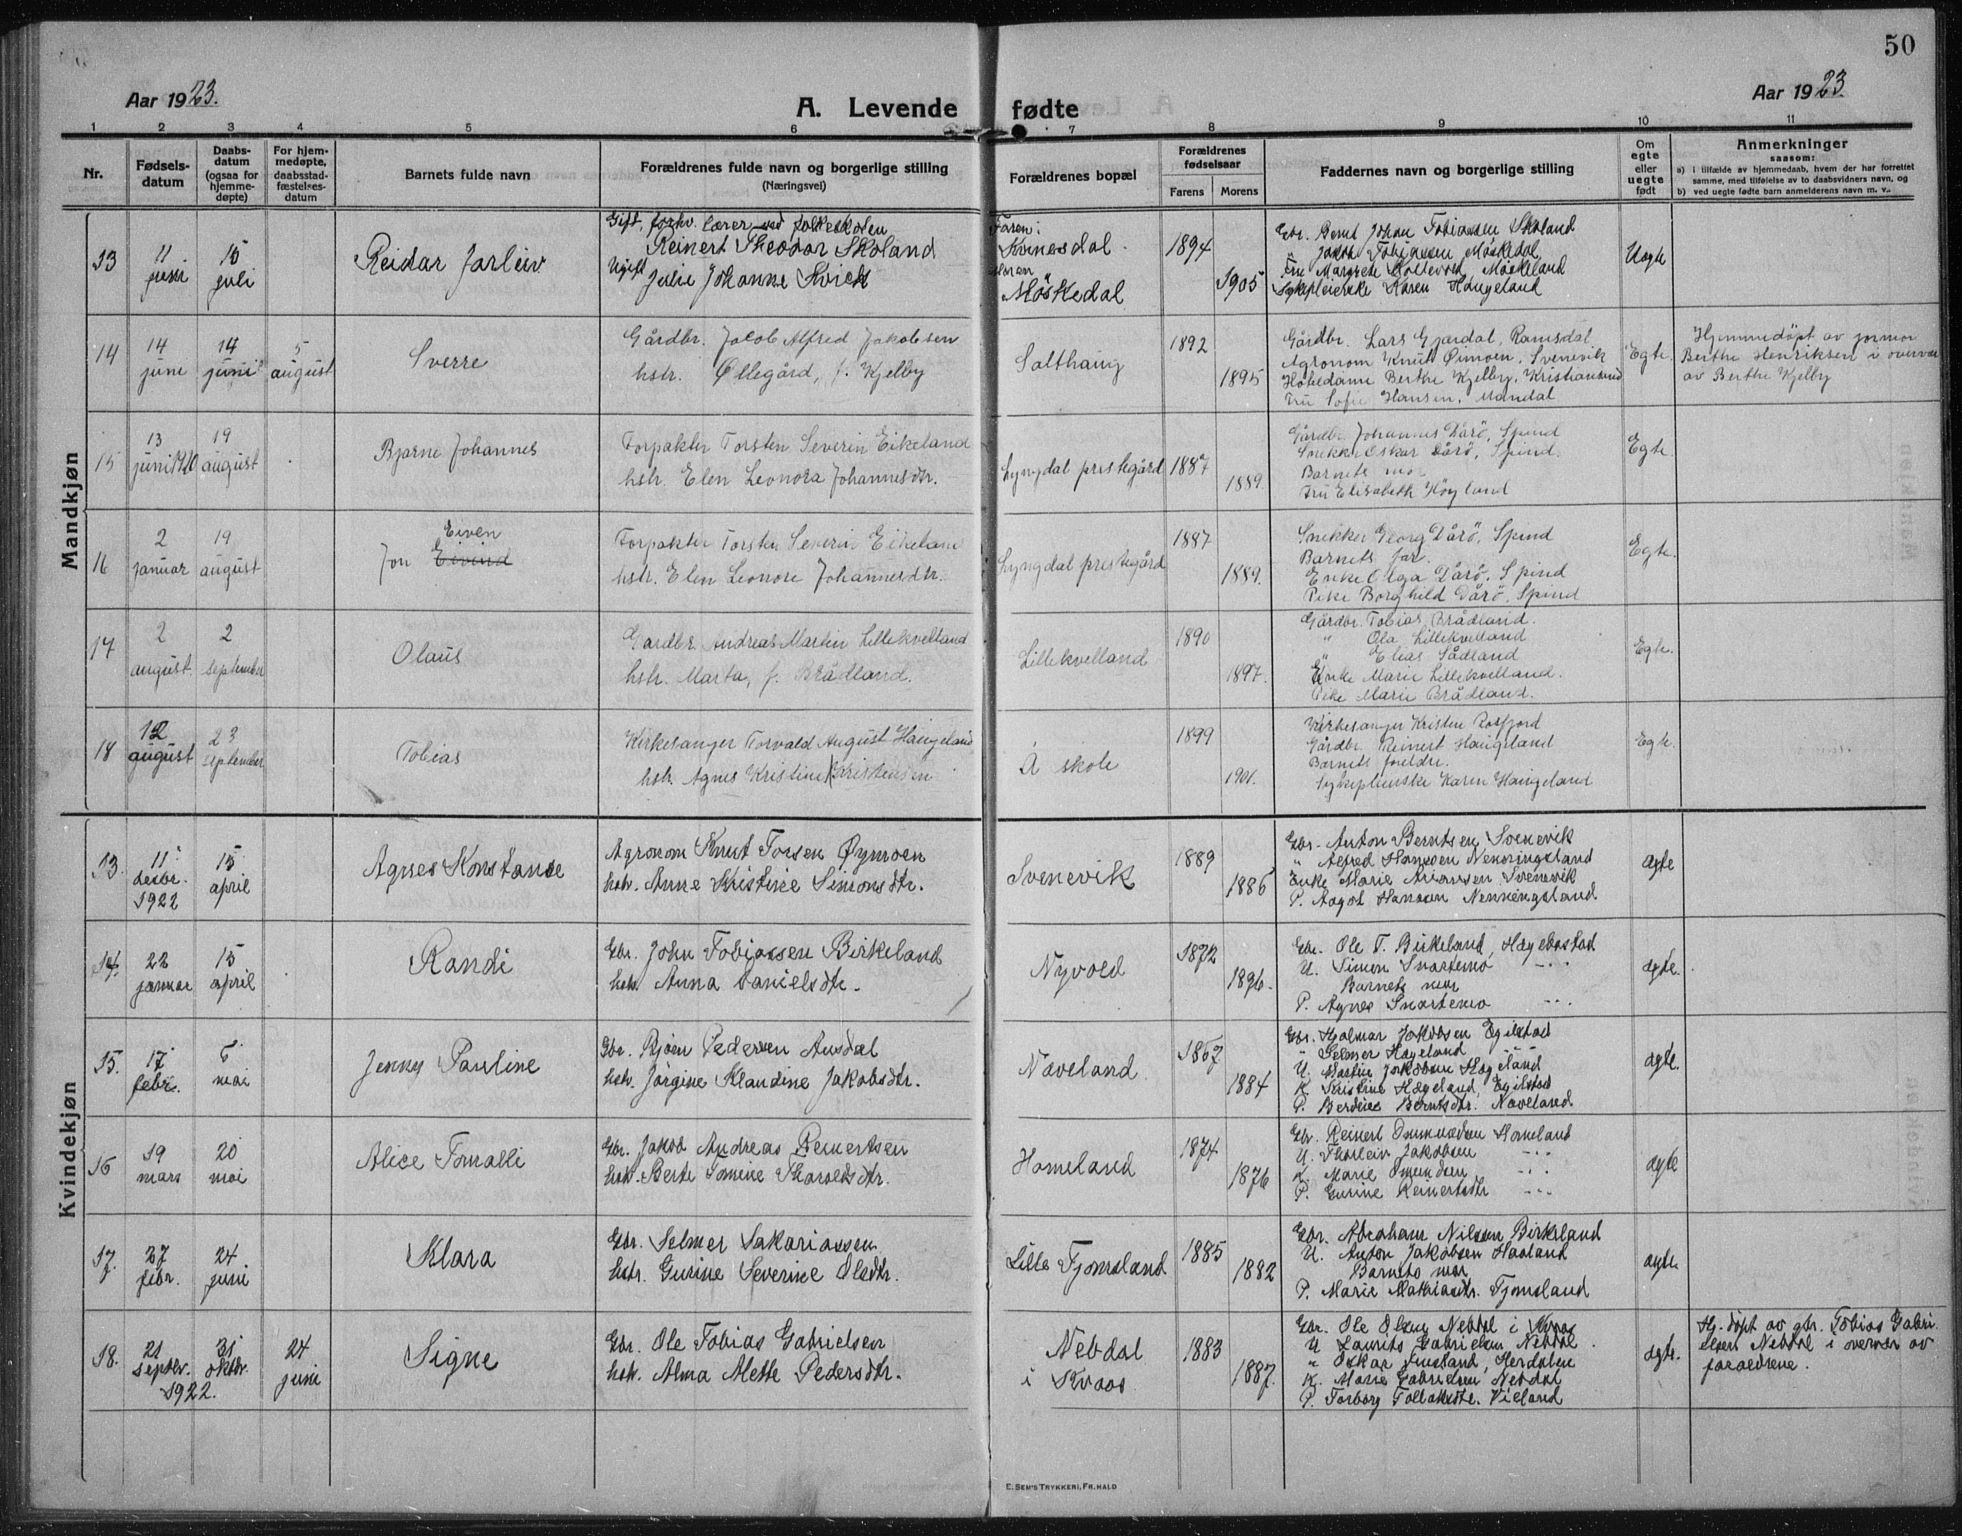 50
Aar 1923.
A. Levende fødte
Aar 1923.
1 2 3 4 5 6 7 8 9 10 11
Nr.
Fødsels-
datum
Daabs-
datum
(ogsaa for
hjemme-
døpte)
For hjem-
medøpte,
daabsstad-
fæstelses-
datum
Barnets fulde navn
Forældrenes fulde navn og borgerlige stilling
(Næringsvei)
Forældrenes bopæl
Forældrenes
fødselsaar
Farens Morens
Faddernes navn og borgerlige stilling
Om
egte
eller
uegte
født
Anmerkninger
saasom:
a) i tilfælde av hjemmedaab, hvem der har forrettet
samme, med tilføielse av to daabsvidners navn, og
b) ved uegte fødte barn anmelderens navn m. v.
Mandkjøn
13
11 juni
15 juli
Reidar Jarleiv
Gift, forhv. lærer ved folkeskolen
Reinert Theodor Skoland
Ugift Julie Johanne
Faren:
Kvinesdal.
Moren
Møskedal
1894
1905
Gbr. Bernt Johan Tobiassen Skoland
" Jakob Tobiassen Møskedal
Fru Margrete Møskeland
Sykepleierske Karen Haugeland
Uegte
14
14 juni
14 juni
5 august
Sverre
Gårdbr. Jacob Alfred Jakobsen
hstr. Øllegård, f. Kjelby
Salthaug
1892
1895
Gårdbr. Lars Gjerdal, Ramsdal
Agronom Knut Øimoen, Svenevik
Berthe Kjelby, Kristiansand
Fru Sofie Hansen, Mandal
Egte
Hjemmedøpt av jormor
Berthe Henriksen i overvær
av Berthe Kjelby
15
13 juni 1920
19 august
Bjarne Johannes
Forpakter Torsten Severin Eikeland
hstr. Elen Leonora Johannesdtr.
Lyngdal prestegård
1887
1889.
Gårdbr. Johannes Dårø, Spind
Snekker Oskar Dårø, Spind.
Barnets mor
Fru Elisabeth Høyland
Egte
16
2 januar
19 august
Eiven
Jon Eivind
Forpakter Torsten Severin Eikeland
hstr. Elen Leonore Johannesdtr.
Lyngdal prestegård
1887
1889.
Snekker Georg Dårø, Spind
Barnets far.
Enke Olga Dårø, Spind
Pike Borghild Dårø, Spind
Egte.
17
2 august
2 september
Olaus
Gardbr. Andreas Martin Lillekvelland
hstr. Marta, f. Brådland.
Lillekvelland
1890
1897.
Gårdbr. Tobias Brådland.
" Ola Lillekvelland
" Elias Sådland
Enke Marie Lillekvelland.
Pike Marie Brådland.
Egte.
18
12 august
23 september
Tobias
Kirkesanger Torvald August Haugeland
hstr. Agnes Kristine Kristensen
Å skole
1899
1901.
Kirkesanger Kristen Rosfjord
Gårdbr. Reinert Haugeland
Barnets foreldre.
Sykepleierske Karen Haugeland
Egte.
Kvindekjøn
13.
11 desbr. 1922
15 april
Agnes Konstanse
Agronom Knut Torsen Øymoen
hstr. Anne Kristine Simonsdtr.
Svenevik
1889
1886
Gbr. Anton Berntsen Svenevik
" Alfred Hansen Nenningsland
Enke Marie Svenevik
P. Aagot Hansen Nenningsland
ægte
14.
22 januar
15 april
Randi
Gbr. John Tobiassen Birkeland
hstr. Anna Danielsdtr.
Nyvold
1872
1896.
Gbr. Ole T. Birkeland, Hægebostad
U. Simon Snartemo -"-
Barnets mor
P. Agnes Snartemo -"-
ægte.
15.
17 febr.
6 mai
Jenny Pauline
Gbr. Bjøen Pedersen Ausdal
hstr. Jørgine Klaudine Jakobsdtr.
Næveland.
1867
1884
Gbr. Hjalmar Jakobsen Egilstad
" Selmer Hægeland
U. Martin Jakobsen Hægeland
K. Kristine Hægeland, Egilstad
P. Berntsdtr. Næveland
ægte.
16
19 mars
20 mai
Alice Tomalli
Gbr. Jakob Andreas Reinertsen
hstr. Berte Tomine Tharaldsdtr.
Homeland
1874
1876
Gbr. Reinert Omundsen Homeland
U. Thorleiv Jakobsen -"-
K. Marie Omundsen -"-
P. Gurine Reinertsdtr -"-
ægte
17.
27 febr.
24 juni
Klara
Gbr. Selmer Sakariassen
hstr. Gurine Severine Olsdtr.
Lille Tjomsland
1885
1882
Gbr. Abraham Nilsen Birkeland
U. Anton Jakobsen Haaland
Barnets mor
P. Marie Mathiasdtr. Tjomsland
ægte
18.
21 septbr.
31 oktbr.
1922.
24 juni
Signe
Gbr. Ole Tobias Gabrielsen
hstr. Alma Alette Pedersdtr.
Nebdal
i Kvaas
1883
1887.
Gbr. Ole Olsen Nebdal i Kvaas
U Laurits Gabrielsen Nebdal
" Oskar Herdalen
K. Marie Gabrielsen Nebdal
P. Torborg Tollaksdtr. Vieland
ægte.
Hj. døpt av gbr. Tobias Gabri-
elsen Nebdal i overvær av
foraeldrene.
E. SEM'S TRYKKERI, FR.HALD